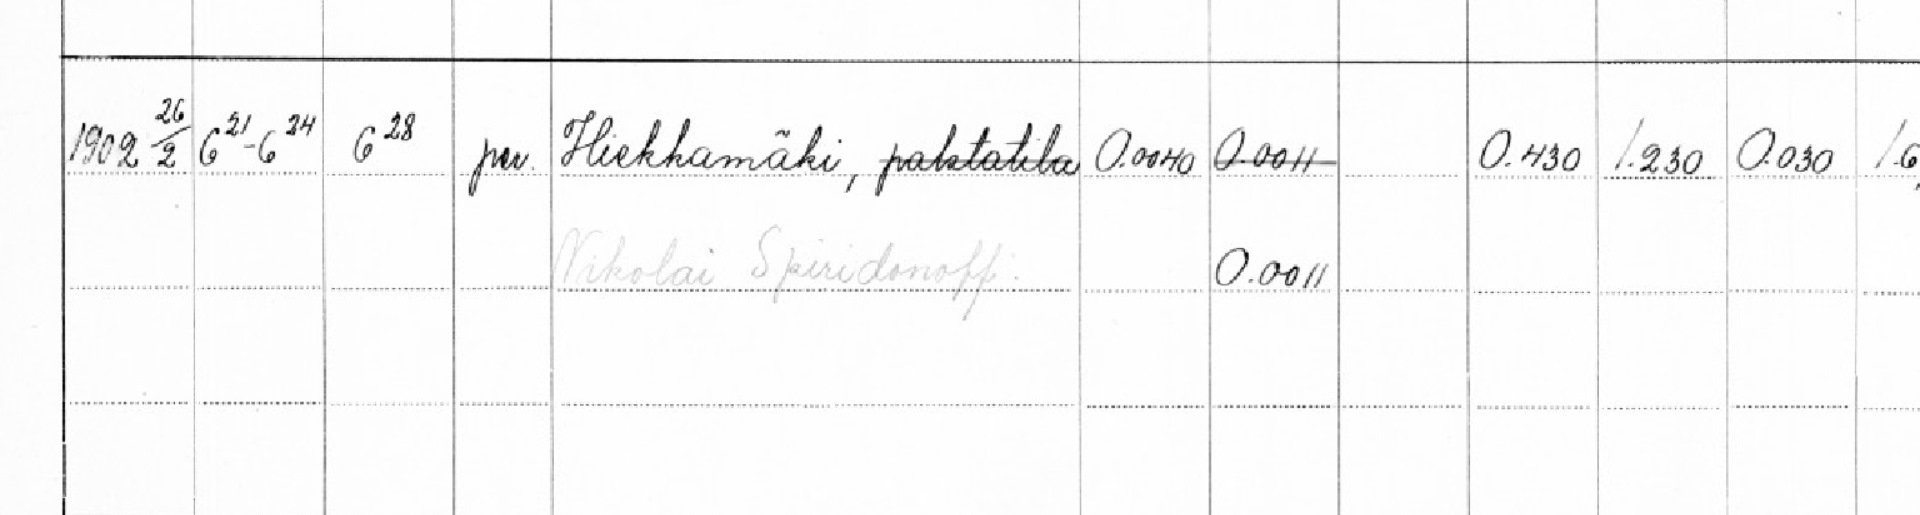 1902 26/2 6²¹-6²⁴ 6²⁸ per. Hiekkamäki, palstatila 0.0040 0.0011 0.430 1.230 0.030 1.6
Nikolai Spiridonoff. 0.0011